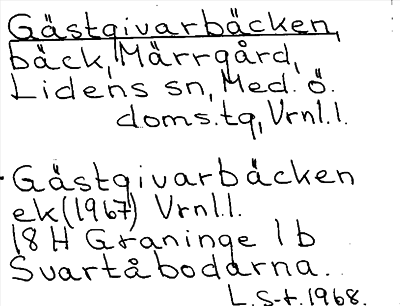 Gästgivarbäcken,
bäck, Märrgård,
Lidens sn, Med. ö.
doms.tg, Vrnl.l.
Gästgivarbäcken
ek (1967) Vrnl.l.
18 H Graninge 1 b
Svartåbodarna.
L. S-t. 1968.